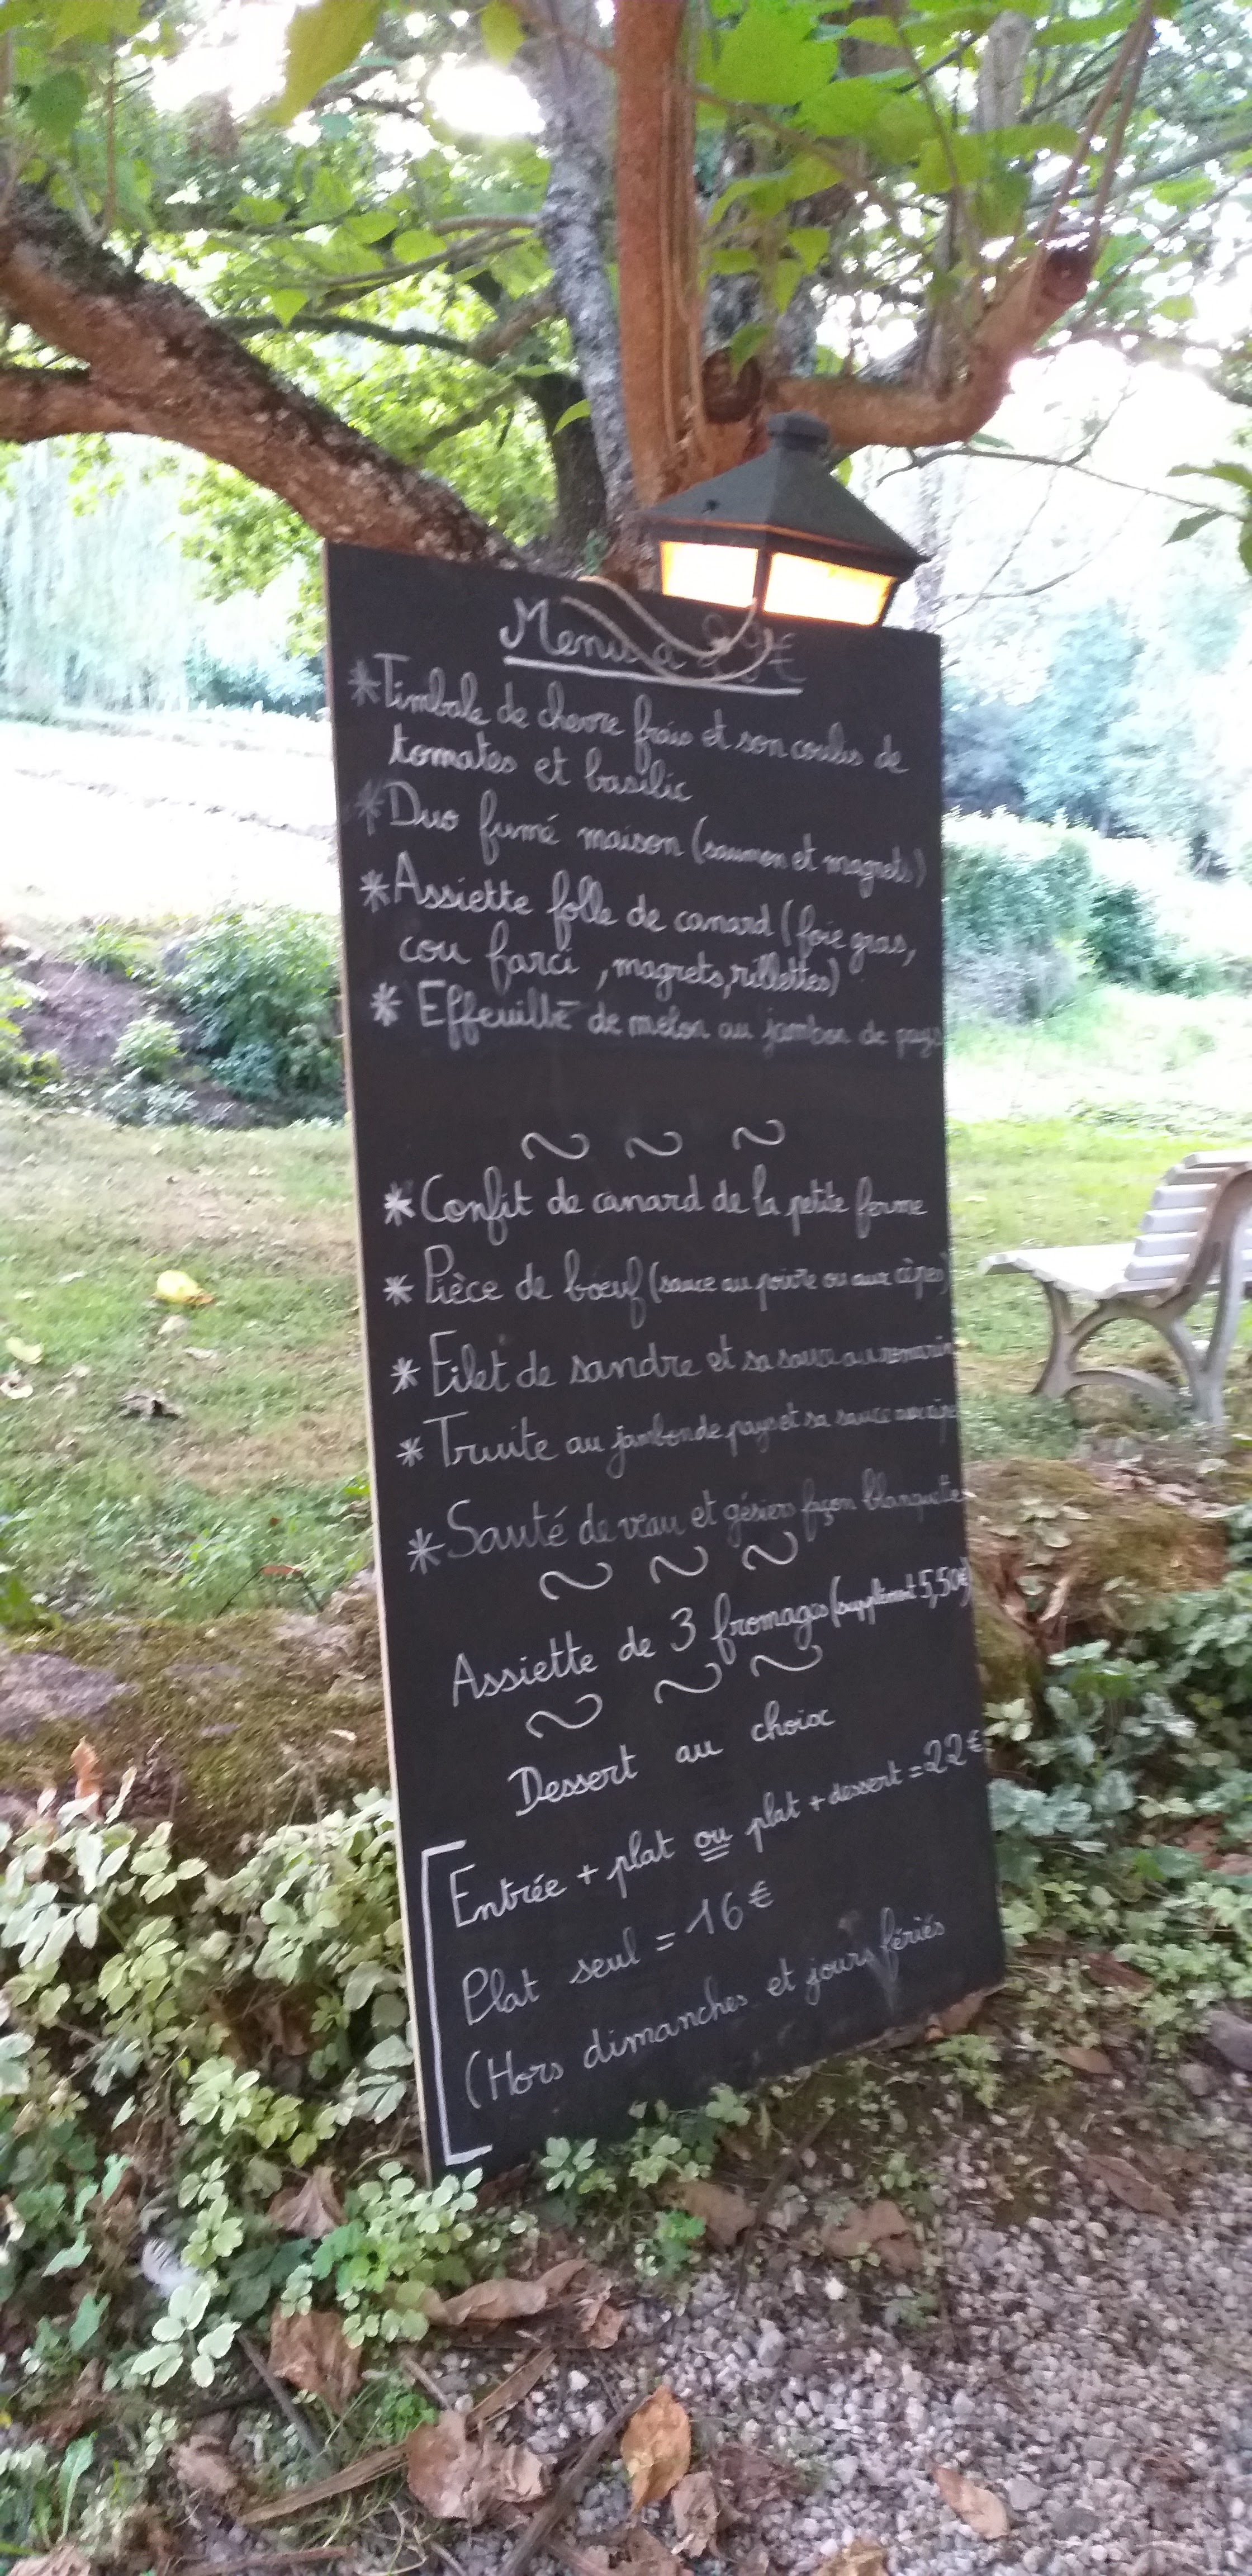 Menu à €
*Timbale de chèvre frais et son coulis de
tomates et basilic
*Duo fumé maison (saumon et magrets)
*Assiette folle de canard (foie gras,
cou farci, magrets, rillettes)
* Effeuillé de melon au jambon de pays
~ ~ ~
*Confit de canard de la petite ferme
* Pièce de bœuf (sauce au poivre ou aux cèpes)
* Filet de sandre et sa sauce au romarin
* Truite au jambon de pays et sa sauce aux
* Sauté de veau et gésiers façon blanquette
~ ~ ~
Assiette de 3 fromages (supplément 5,50€)
~ ~ ~
Dessert au choix
Entrée + plat ou plat + dessert = 22 €
Plat seul = 16 €
(Hors dimanches et jours fériés